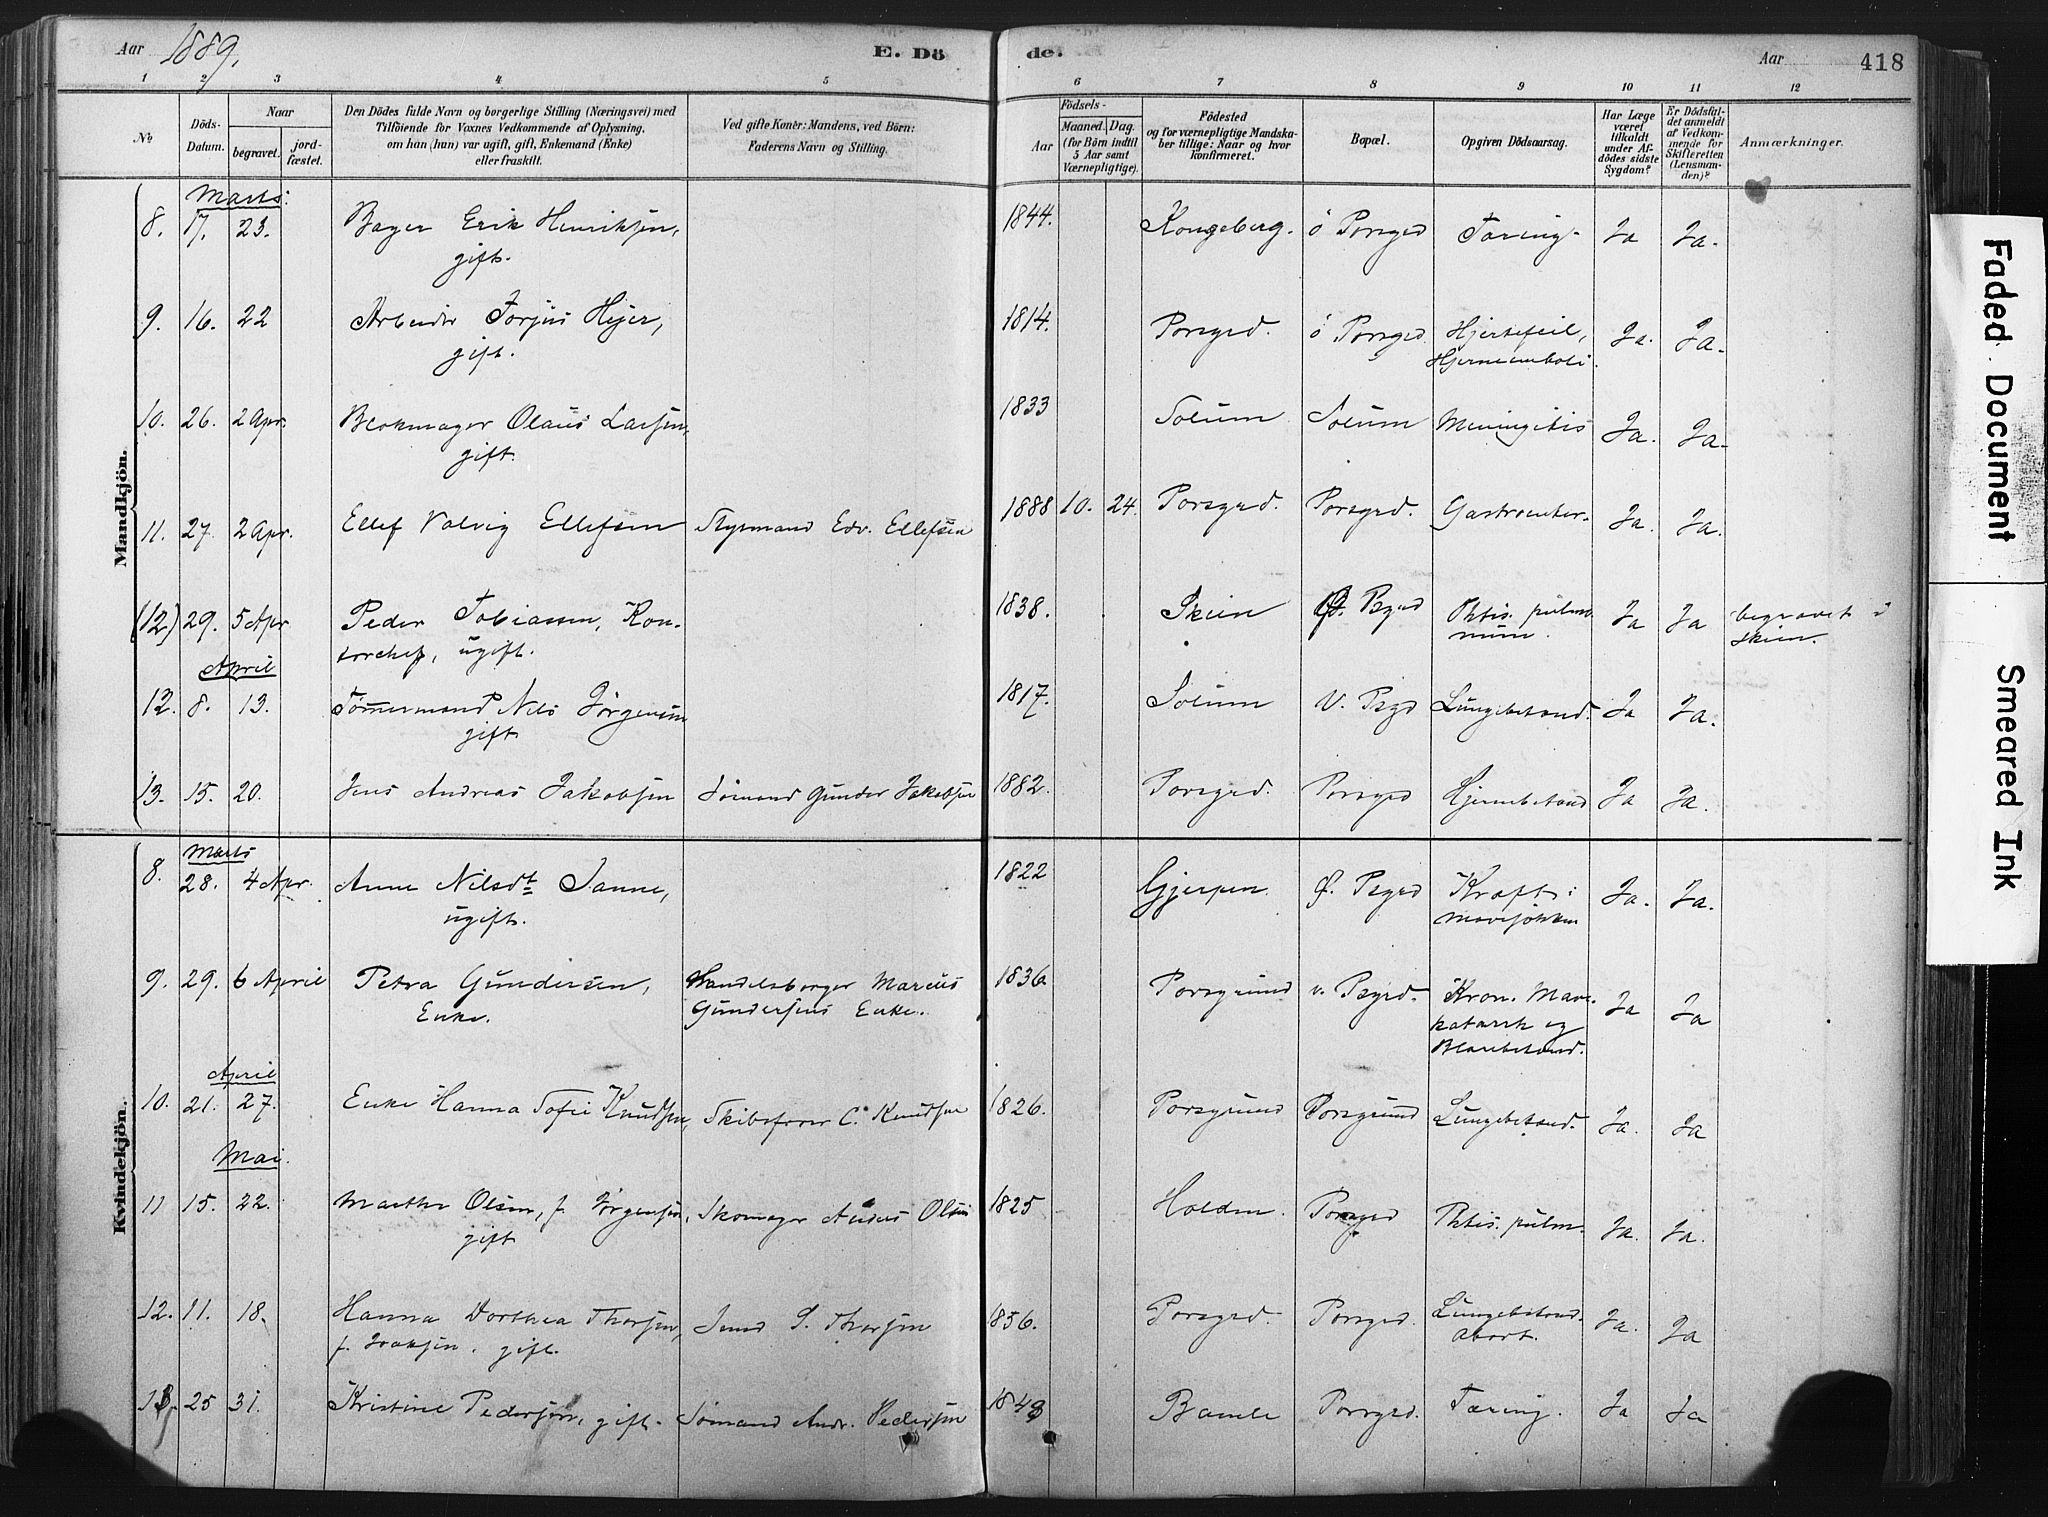 Aar 1889.
E. Dö
1 2 3 4 5
No
Döds-Datum.
Naar
begravet.
jord-fæstet.
Den Dödes fulde Navn og borgerlige Stilling (Næringsvei) med
Tilföiende for Voxnes Vedkommende af Oplysning,
om han (hun) var ugift, gift, Enkemand (Enke)
eller fraskilt.
Ved gifte Koner: Mandens, ved Börn:
Faderens Navn og Stilling.
Mandkjön.
Marts:
8. 17. 23. Bager Erik Henriksen,
gift.
9. 16. 22 Arbeider Torjus Hejer,
gift.
10. 26. 2 Apr. Blokmager Olaus Larsen,
gift.
11. 27 2 Apr. Ellef Valvig Ellefsen Styrmand Edv. Ellefsen
(12) 29. 5 Apr Peder Tobiassen, Kon-
torchef, ugift.
April
12. 8. 13. Tömmermand Nils Jörgensen
gift
13. 15. 20. Jens Andreas Jakobsen Sömand Gunder Jakobsen
Kvindekjön.
Marts
8. 28. 4 Apr. Anne Nilsdt Sanne,
ugift.
9. 29. 6 April Petra Gundersen, Handelsborger Marcus
Enke. Gundersens Enke.
April
10. 21. 27. Enke Hanna Sofie Knudsen, Skibsförer C. Knudsen
Mai.
11 15. 22. Marthe Olsen, f. Jörgensen, Skomager Anders Olsen
gift
12. 11. 18. Hanna Dorthea Thorsen, Smed S. Thorsen
f. Isaksen, gift.
13. 25 31. Kristine Pedersen, gift. Sömand Andr. Pedersen
de.
Aar
418
6 7 8 9 10 11 12
Födsels-
Aar
Maaned. Dag.
(for Börn indtil
5 Aar samt
Værnepligtige).
Födested
og for værnepligtige Mandska-
ber tillige: Naar og hvor
konfirmeret.
Bopæl.
Opgiven Dödsaarsag.
Har Læge
været
tilkaldt
under Af-
dödes sidste
Sygdom?
Er Dödsfal-
det anmeldt
af Vedkom-
mende for
Skifteretten
(Lensman-
den)?
Anmærkninger.
1844. Kongsberg. ö Porsgrd Tæring. Ja Ja.
1814. Porsgrd. ö Porsgrd Hjertefeil,
Hjerneemboli. Ja. Ja.
1833 Solum Solum Meningitis Ja. Ja.
1888 10. 24. Porsgrd. Porsgrd. Gastroenter. Ja. Ja.
1838. Skien Ø. Psgrd Phtis. pulmo-
num. Ja Ja begravet i
Skien.
1817. Solum V. Psgd Lungebetænd. Ja Ja.
1882. Porsgrd. Porsgrd Hjernebetænd Ja Ja.
1822 Gjerpen. Ø. Psgrd Kræft i
Mavesækken Ja. Ja.
1836. Porsgrund v. Psgrd. Kron. Mave-
katarrh og
Blærebetænd. Ja Ja
1826. Porsgrund Porsgrund Lungebetænd. Ja. Ja
1825 Holden. Porsgrd Phtis. pulm. Ja. Ja.
1856. Porsgrd. Porsgrd. Lungebetænd.
Abort. Ja. Ja
1843 Bamle Porsgrd. Tæring. Ja Ja
Faded Document
Smeared Ink